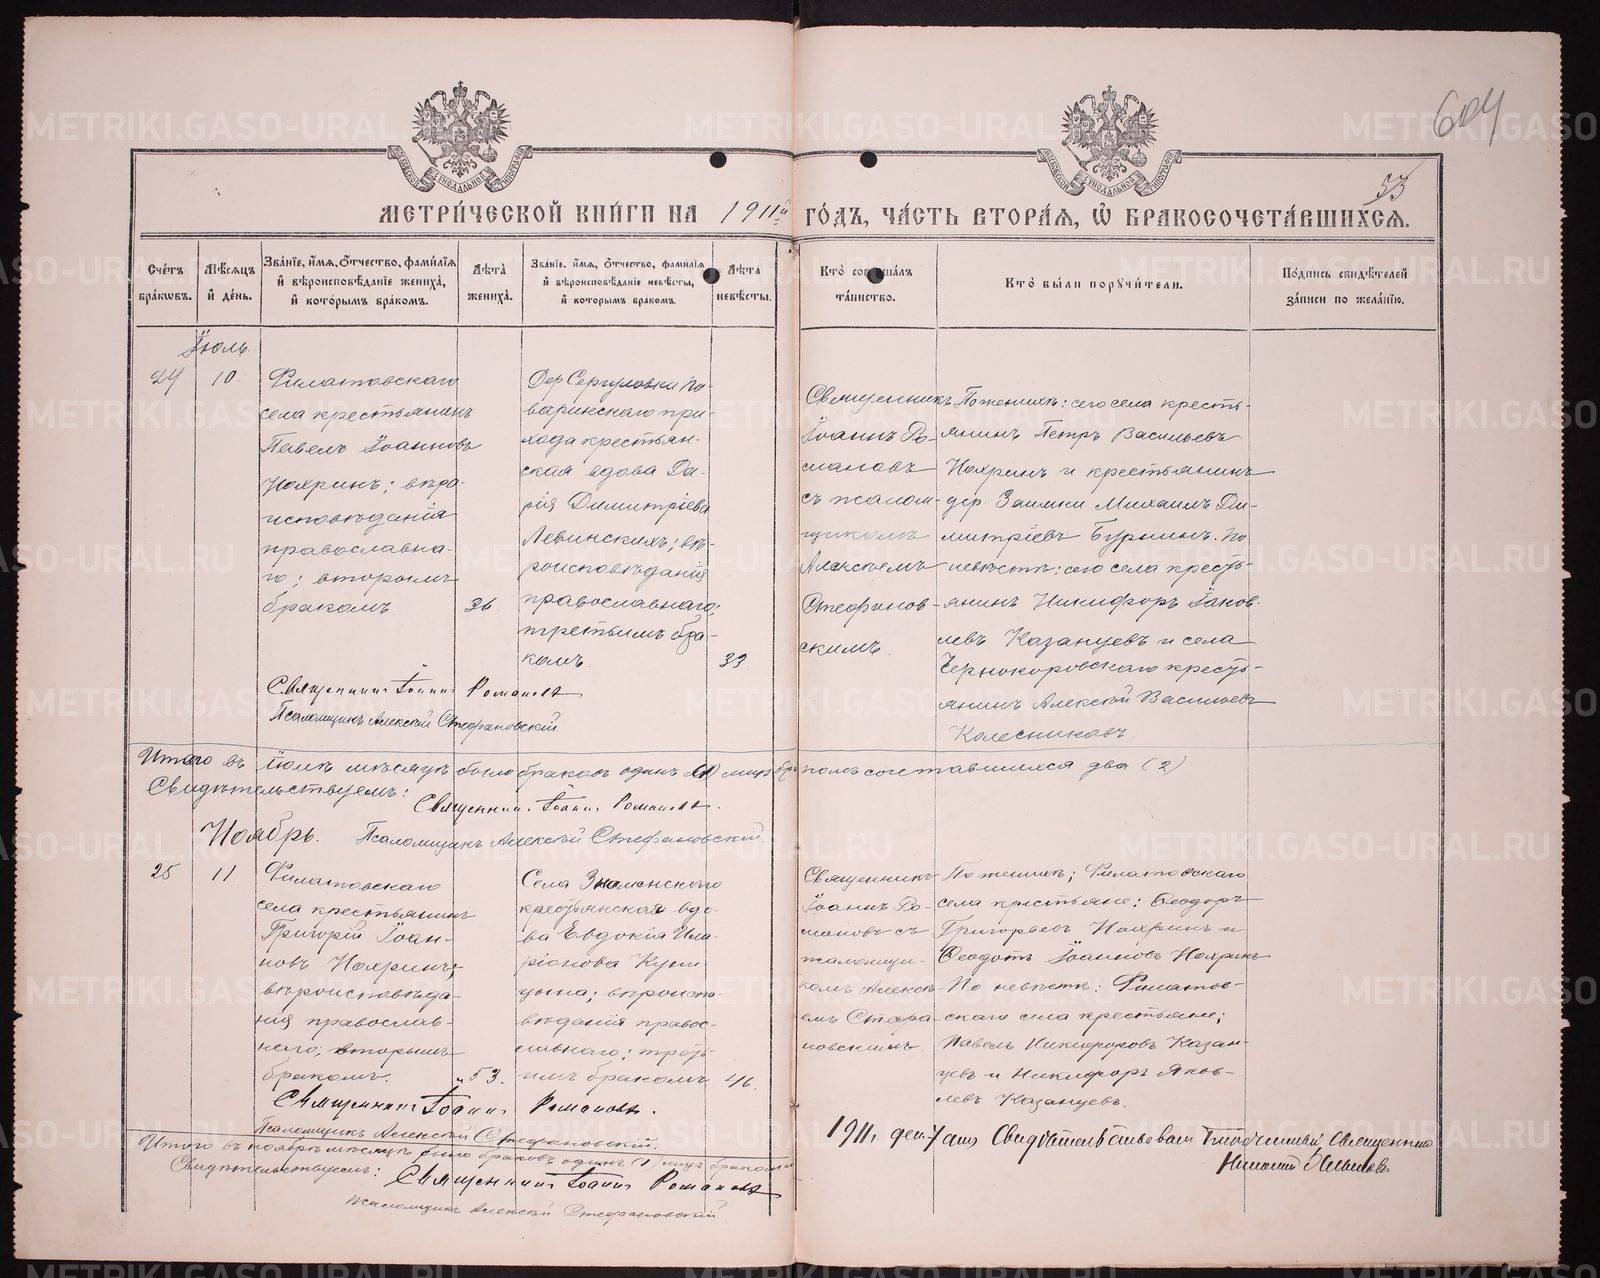 604
53
МЕТРИ́ЧЕСКОЙ КНИ́ГИ НА 1911й ГО́ДЪ, ЧА́СТЬ ВТОРА́Я, Ѽ БРАКОСОЧЕТА́ВШИХСЯ.
Сче́тъ бра́ковъ.
Мѣ́сяцъ и҆ де́нь.
Зва́нїе, и҆́мя, ѻ҆́тчество, фами́лїя и҆ вѣроисповѣ́данїе жениха̀, и҆ кото́рымъ бра́комъ.
Лѣ́та жениха̀.
Зва́нїе, и҆́мя, ѻ҆́тчество, фами́лїя и҆ вѣроисповѣ́данїе невѣ́сты, и҆ кото́рымъ бра́комъ.
Лѣ́та невѣ́сты.
Кто̀ соверша́лъ та́инство.
Кто̀ бы́ли порꙋчи́тели.
По́дпись свидѣ́телей за́писи по жела́нїю.
Іюль.
24
10.
Филатовскаго
села крестьянинъ
Павелъ Іоанновъ
Нохринъ; вѣро-
исповѣданія
православна-
го; вторымъ
бракомъ.
36.
Дер. Сергуловки По-
варинскаго при-
хода крестьян-
ская вдова Да-
рія Димитріева
Левинскихъ; вѣ-
роисповѣданія
православнаго;
третьимъ бра-
комъ.
33
Священникъ
Іоаннъ Ро-
мановъ
съ псалом-
щикомъ
Алексѣемъ
Стефанов-
скимъ.
По женихѣ: сего села кресть-
янинъ Петръ Васильевъ
Нохринъ и крестьянинъ
дер. Заимки Михаилъ Ди-
митріевъ Бурнинъ. По
невѣстѣ: сего села кресть-
янинъ Никифоръ Іаков-
левъ Казанцевъ и села
Чернокоровскаго кресть-
янинъ Алексѣй Васильевъ
Колесниковъ.
Священникъ Іоаннъ Романовъ
Псаломщикъ Алексѣй Стефановскій.
Итого въ іюлѣ мѣсяцѣ было браковъ одинъ (1) лицъ бракомъ сочетавшихся два (2)
Свидѣтельствуемъ:
Священникъ Іоаннъ Романовъ.
Псаломщикъ Алексѣй Стефановскій.
Ноябрь.
25
11
Филатовскаго
села крестьянинъ
Григорій Іоан-
новъ Нохринъ;
вѣроисповѣда-
нія православ-
наго; вторымъ
бракомъ.
53.
Села Знаменскаго
крестьянская вдо-
ва Евдокія Ила-
ріонова
вѣроиспо-
вѣданія правос-
лавнаго; треть-
имъ бракомъ
46.
Священникъ
Іоаннъ Ро-
мановъ съ
псаломщи-
комъ Алексѣ-
емъ Стефа-
новскимъ.
По женихѣ; Филатовскаго
села крестьяне: Ѳеодоръ
Григорьевъ Нохринъ и
Ѳеодотъ Іоанновъ Нохринъ
По невѣстѣ: Филатов-
скаго села крестьяне;
Павелъ Никифоровъ Казан-
цевъ и Никифоръ Яков-
левъ Казанцевъ.
Священникъ Іоаннъ Романовъ.
Псаломщикъ Алексѣй Стефановскій.
Итого въ ноябрѣ мѣсяцѣ было браковъ одинъ (1) лицъ бракомъ
Свидѣтельствуемъ:
Священникъ Іоаннъ Романовъ
Псаломщикъ Алексѣй Стефановскій.
1911г. дек. 7 дня Свидѣтельствовалъ Благочинный Священникъ
Николай
METRIKI.GASO-URAL.RU